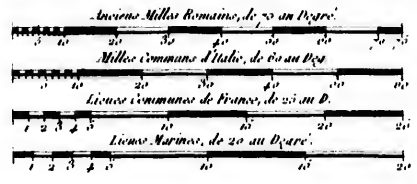 Anciens Milles Romains, de 75 au Degré.
5 10 20 30 40 50 60 70 75
Milles Communs d'Italie, de 60 au Deg
5 10 20 30 40 50 60
Lieues Communes de France, de 25 au D.
1 2 3 4 5 10 15 20 25
Lieues Marines, de 20 au Degré.
1 2 3 4 5 10 15 20